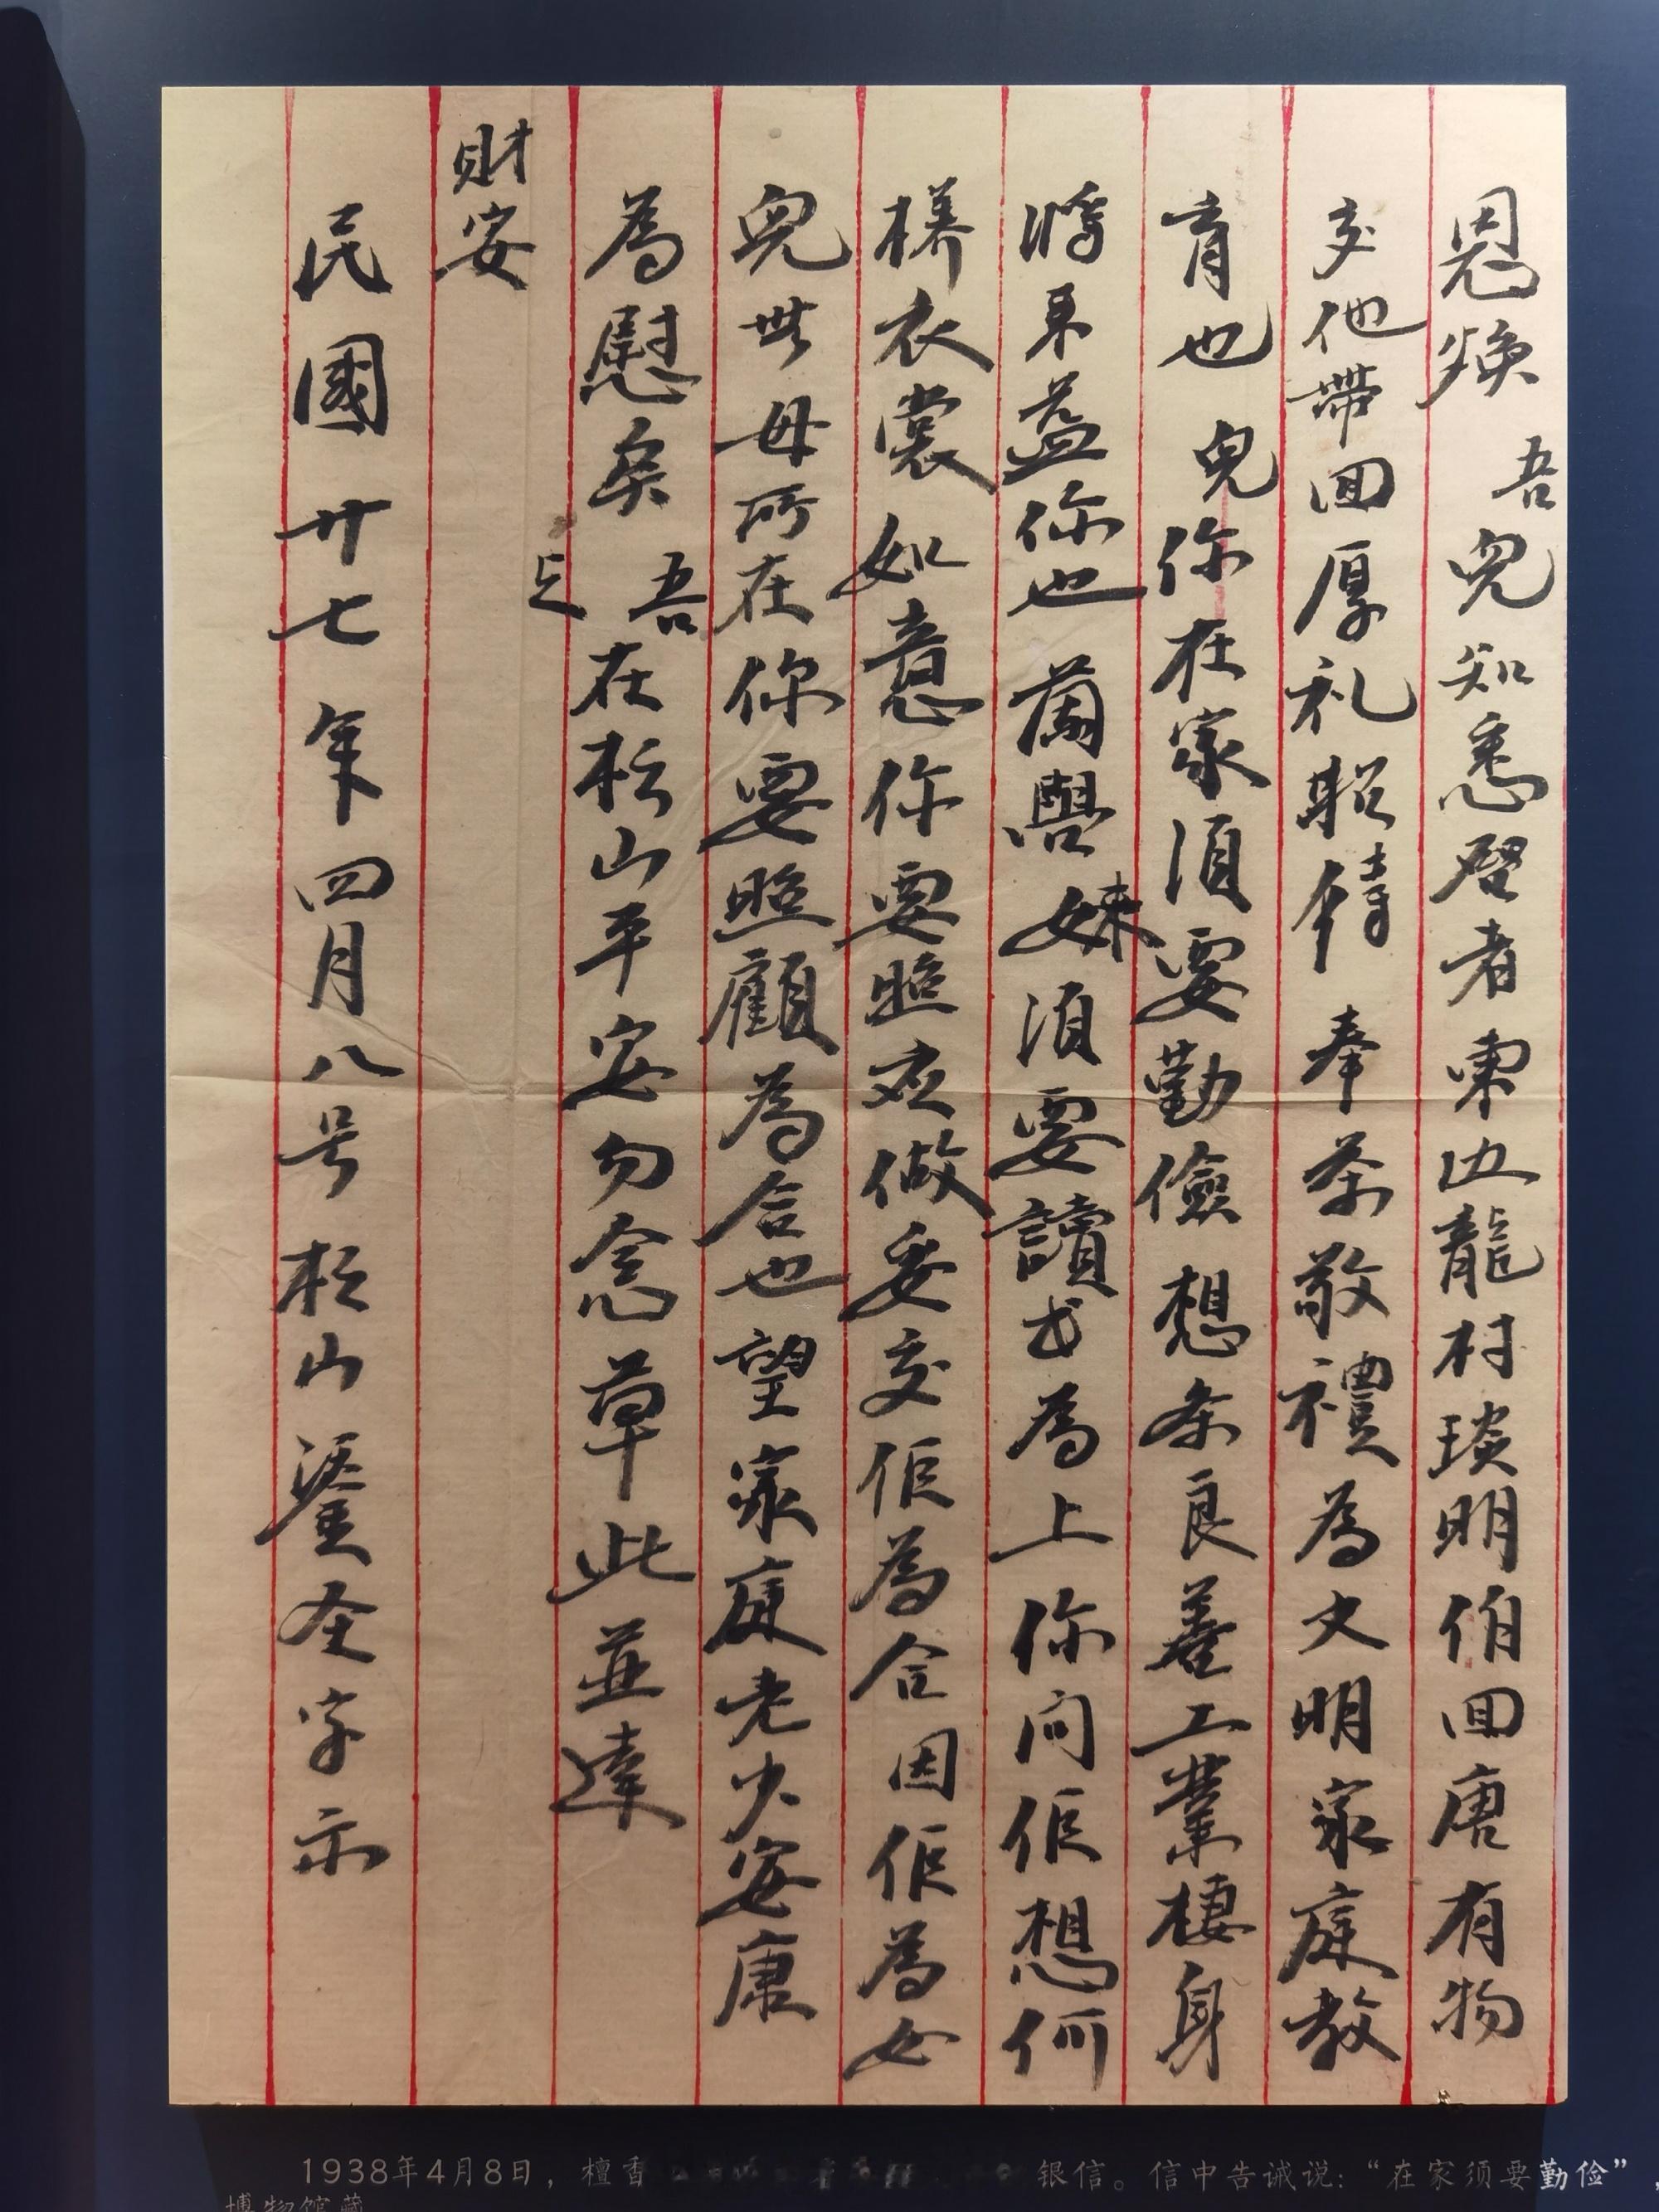 恩煥 吾兒知悉啓者東边龍村琰明伯回唐有物
交他帶回厚礼招待奉茶敬禮為文明家庭教
育也 兒你在家須要勤儉想条良善工業棲身
將来益你也蘭與妹須要讀书為上你问佢想何
樣衣裳如意你要照衣做妥交佢為合因佢為女
兒世母所在你要照顧為合也望家庭老少安康
為慰矣 吾在松山平安勿念草此並達
足
財安
民國廿七年四月八号松山鎏全字示
1938年4月8日，檀香 银信。信中告诫说：“在家须要勤俭”，
博物馆藏